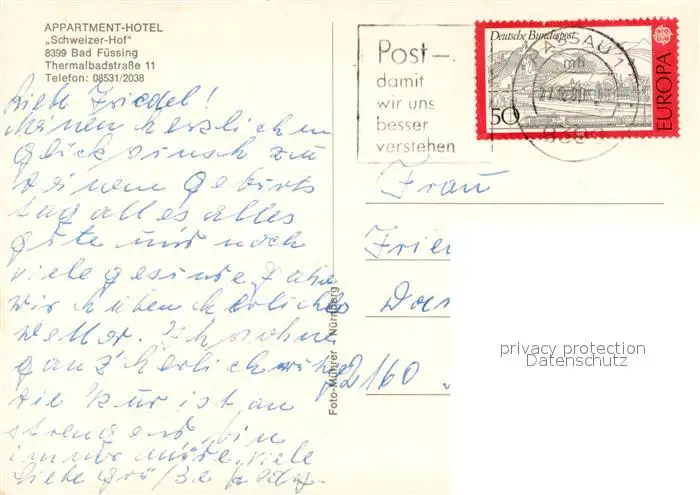 APPARTMENT-HOTEL
„Schweizer-Hof"
8399 Bad Füssing
Thermalbadstraße 11
Telefon: 08531/2038
Liebe Friedel!
Meinen herzlichen
Glückwunsch zu
deinem Geburts
tag alles alles
gute und noch
viele gesunde Jahre
wir haben herrliches
wetter. Ich wohne
ganz herrlich
die Kur ist an
strengend, bin
immer müde, viele
liebe Grüße
Foto-Mührer - Nürnberg
Post –
damit
wir uns
besser
verstehen
Deutsche Bundespost
50
EUROPA
PASSAU 1
mb
Frau
Frie
2160
privacy protection
Datenschutz